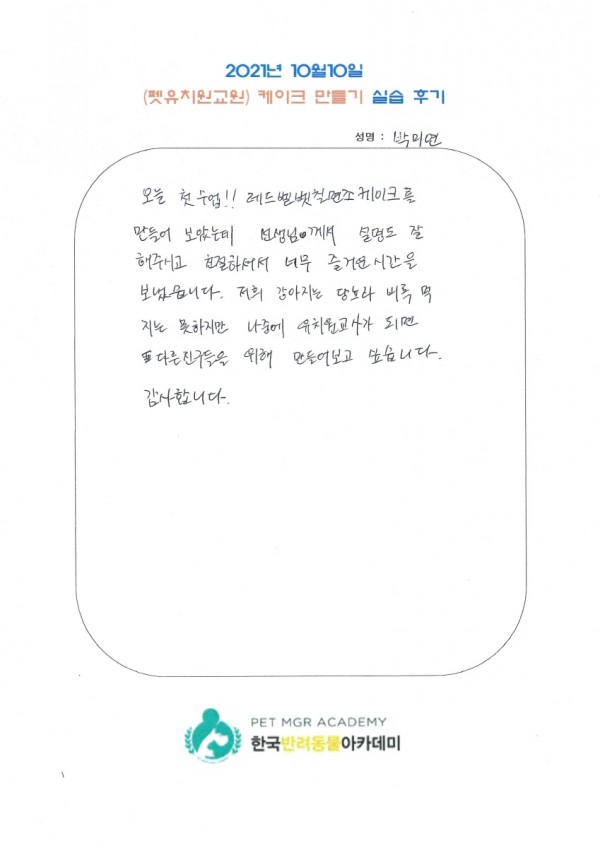 2021년 10월10일
(펫유치원교원) 케이크 만들기 실습 후기
성명 : 박미연
오늘 첫 수업!! 레드벨벳칠면조케이크를
만들어 보았는데 선생님께서 설명도 잘
해주시고 친절하셔서 너무 즐거운시간을
보냈습니다. 저희 강아지는 당뇨라 비록 먹
지는 못하지만 나중에 유치원교사가 되면
다른친구들을 위해 만들어보고 싶습니다.
감사합니다.
PET MGR ACADEMY
한국반려동물아카데미